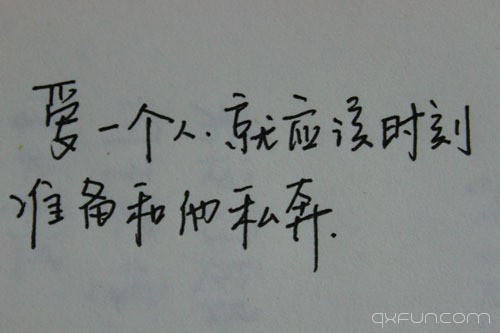 爱一个人.就应该时刻
准备和他私奔.
qxfun.com